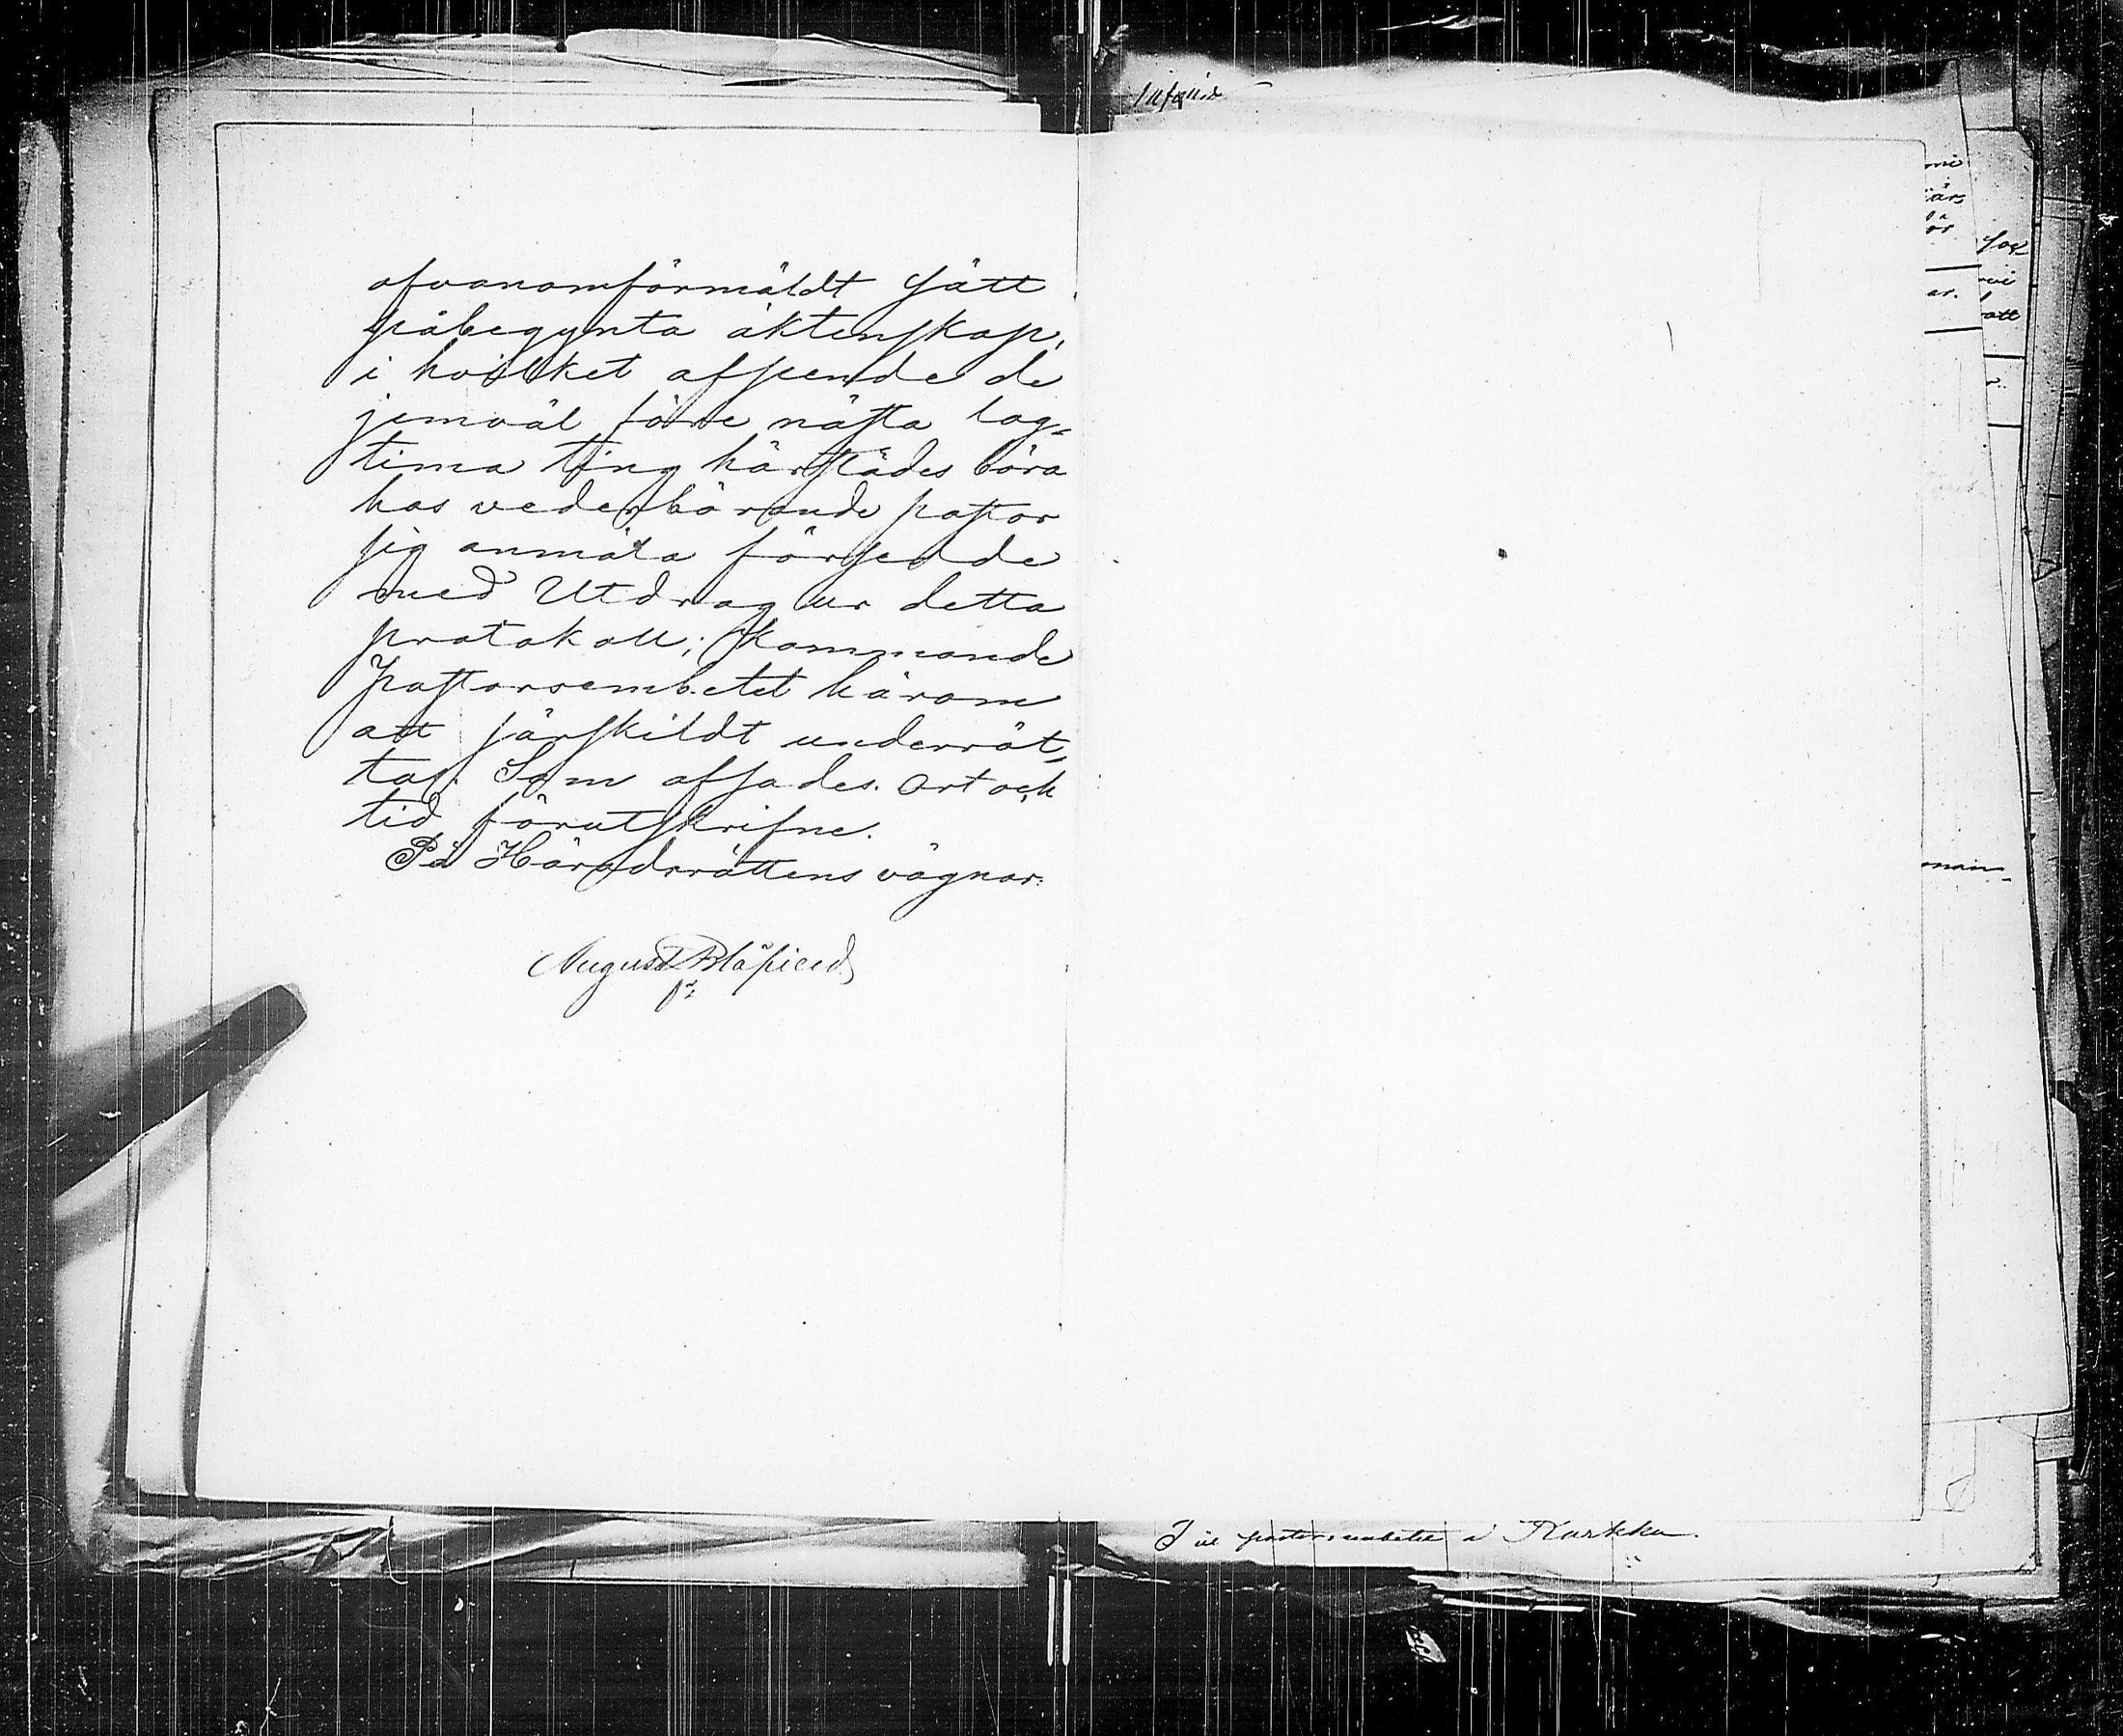 ofvanomförmäldt sätt
påbegynta äktenskap,
i hvilket afseende de
jemväl före nästa lag-
tima ting härstädes böra
hos vederbörande pastor
sig anmäla försedde
med Utdrag ur detta
protokoll; kommande
Pastorsembetet härom
att särskildt underrät-
tas. Som afsades. Ort och
tid förutskrifne.
På Häradsrättens vägnar:
August
mi
är
ar.
att
man-
pastorsembetet i Karkku.